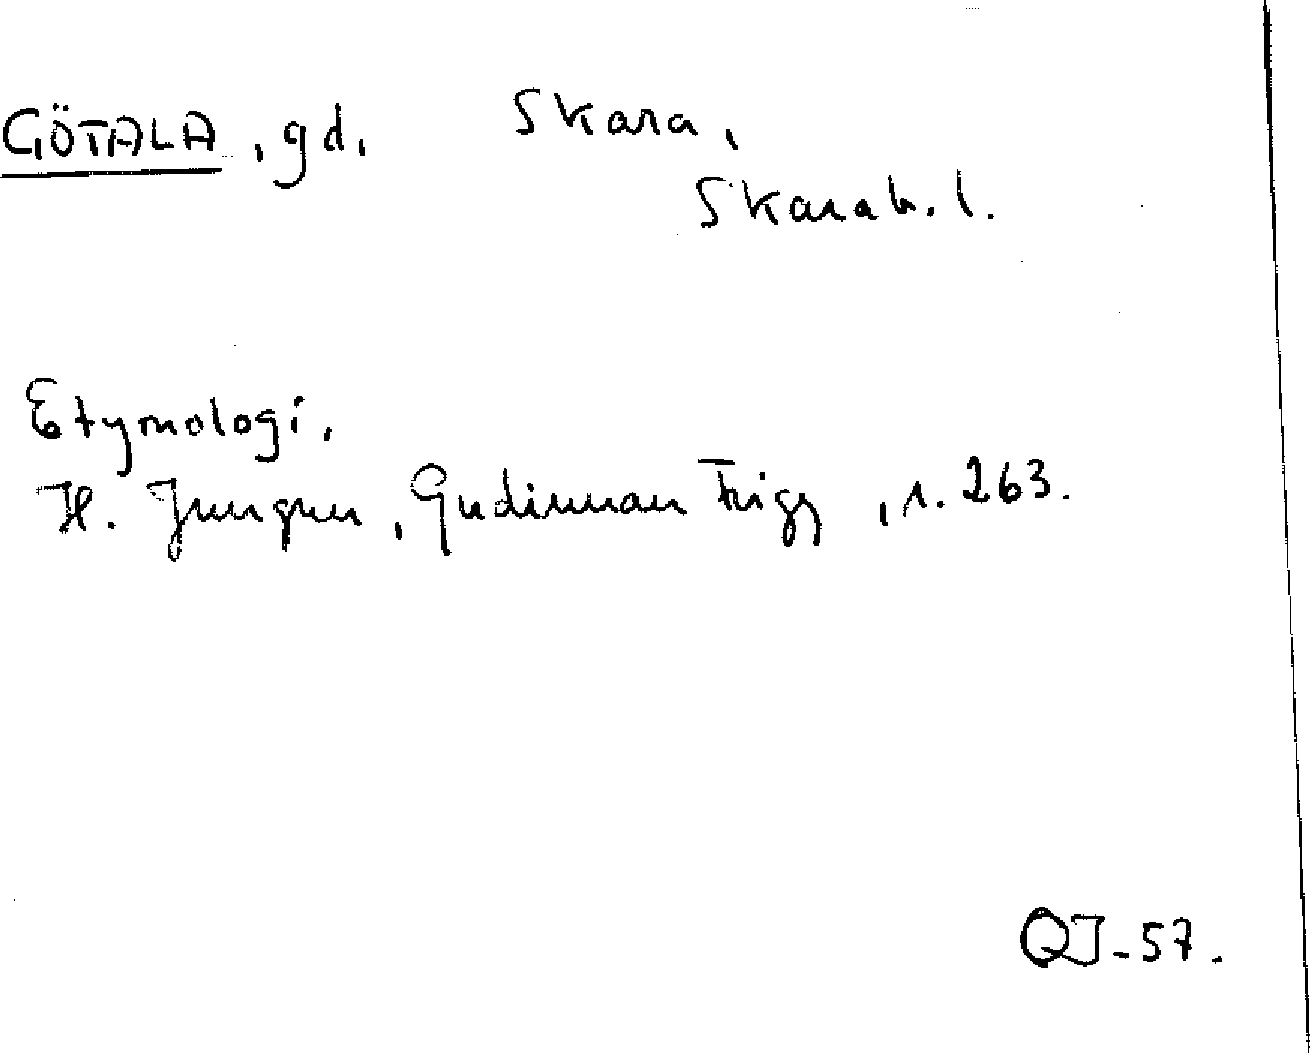 GÖTALA, gd. Skara,
Skarab. l.
Etymologi.
H. Jungner, Gudinnan Frigg, s. 263.
QJ-57.